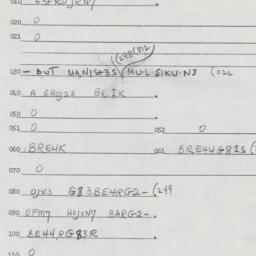 020 0
021 0
(248(812
030 - BUT MANIS+3S / MU-L SIKU-NS (022
040 A GROJSS BRIK
050 0
051 0 052 0
060 BRE4K 061 BRE4UG81S (
070 0
080 OJX3 G83BE4RG2- (249
090 OFM7 HOJXN7 BARG2-.
100 BE44,RG83R
110 0